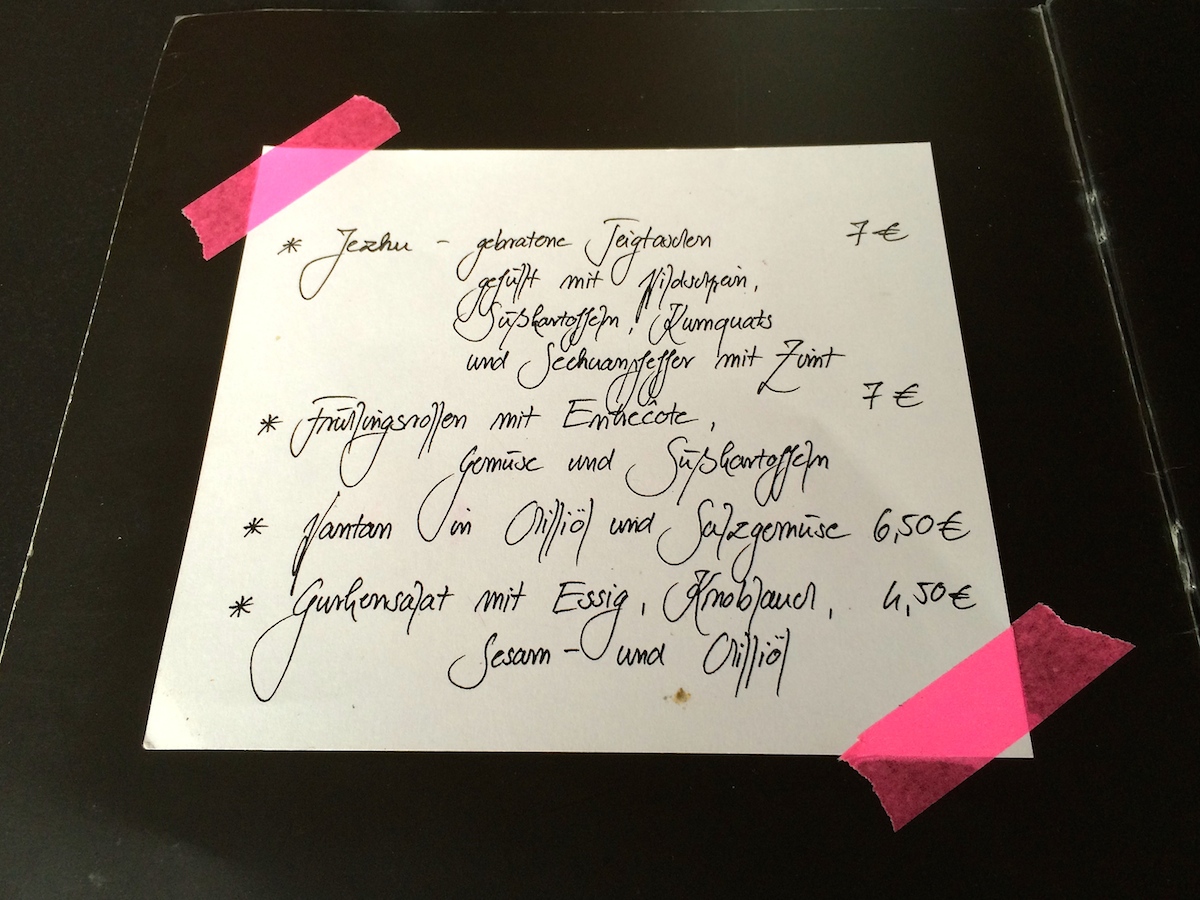 * Jezhu - gebratene Teigtaschen 7 €
gefüllt mit Wildschwein,
Süßkartoffeln, Kumquats
und Sechuanpfeffer mit Zimt
* Frühlingsrollen mit Entrecôte, 7 €
Gemüse und Süßkartoffeln
* Wantan in Chilliöl und Salzgemüse 6,50 €
* Gurkensalat mit Essig, Knoblauch, 4,50 €
Sesam- und Chilliöl